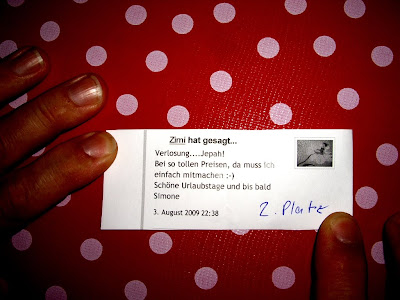 Zimi hat gesagt...
Verlosung....Jepah!
Bei so tollen Preisen, da muss ich
einfach mitmachen :-)
Schöne Urlaubstage und bis bald
Simone
3. August 2009 22:38
2. Platz